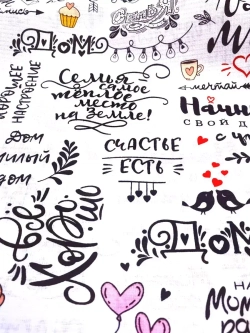 СемьЯ
ДОМ
ХОРОШЕЕ
НАСТРОЕНИЕ
мечтай
Семья
самое
теплое
место
на земле!
Начни
СВОЙ Д
Дом
милый
дом
СЧАСТЬЕ
ЕСТЬ
Всё
Хорошо
ДОМ